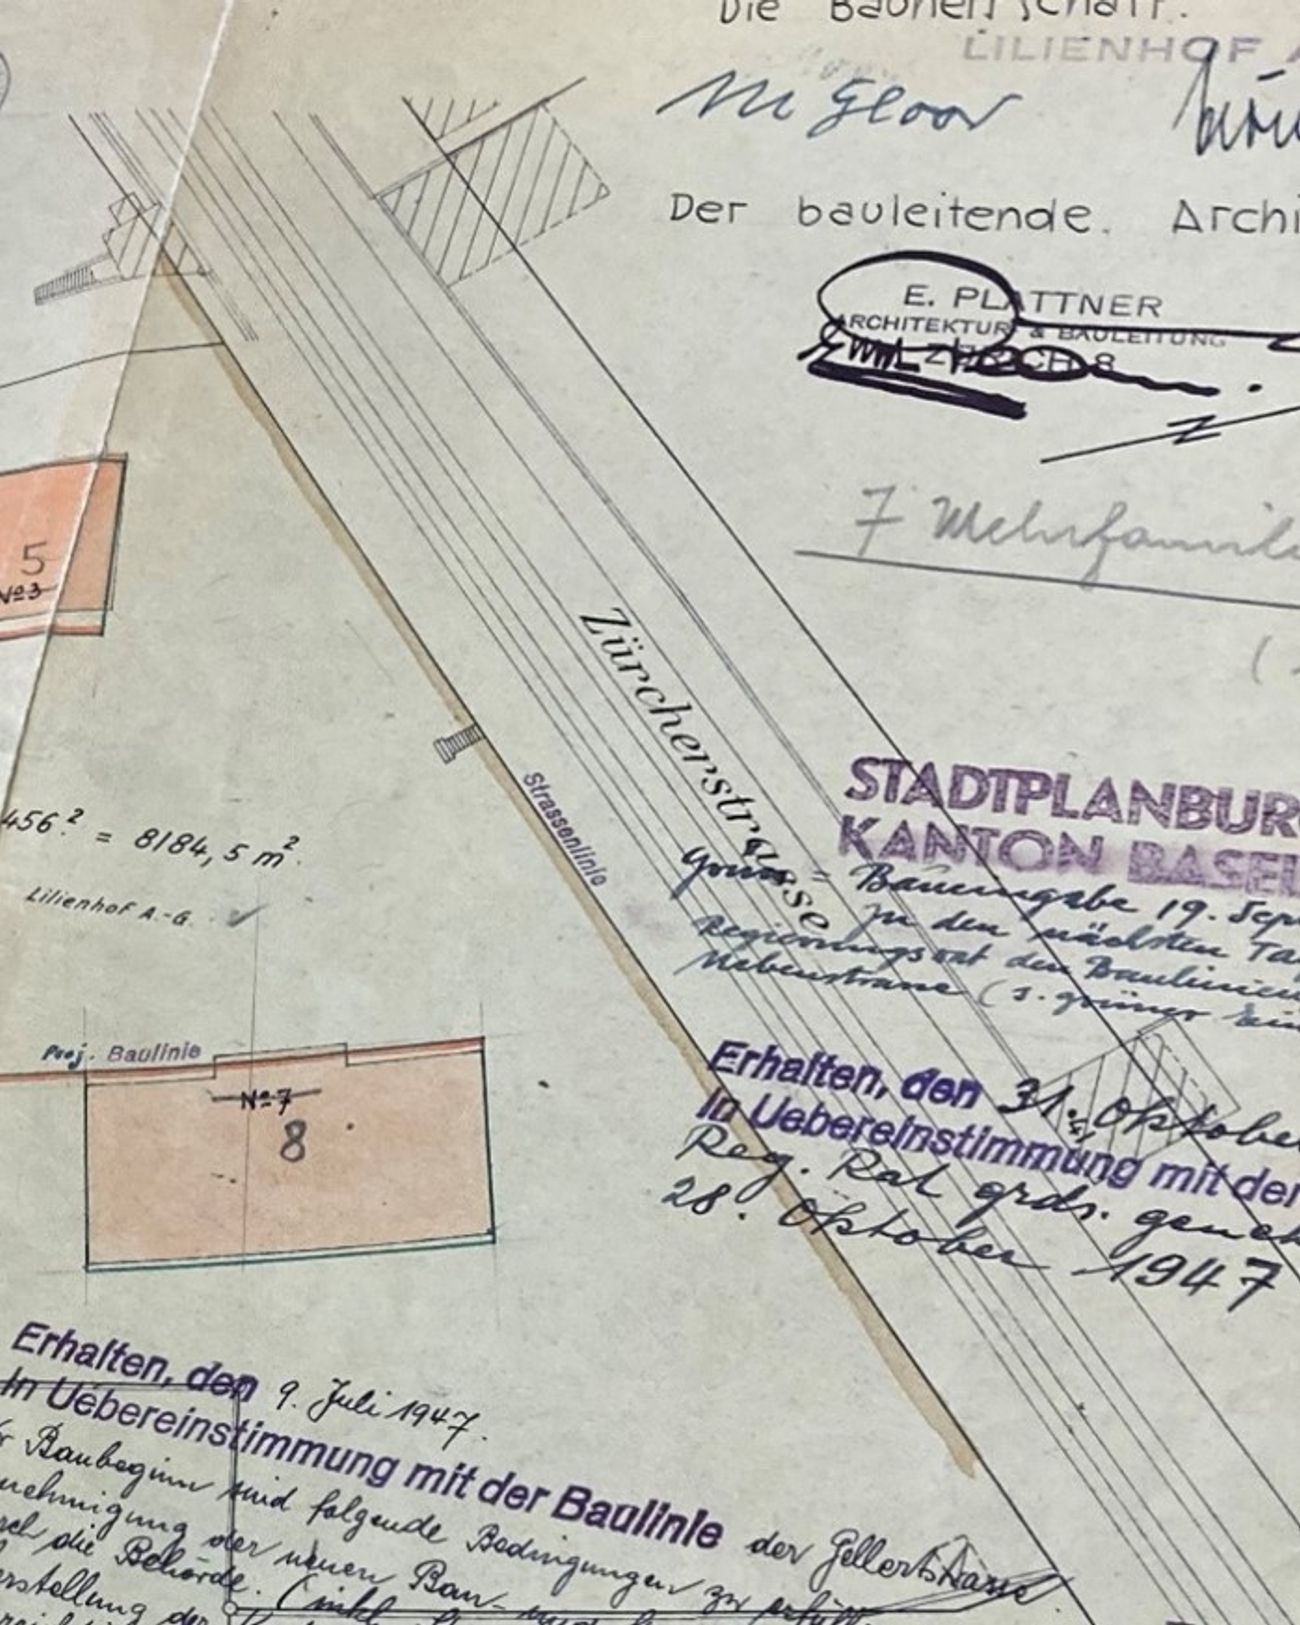 Die Bauherrschaft.
LILIENHOF A
M Gloor
Der bauleitende. Archi
E. PLATTNER
ARCHITEKTUR & BAULEITUNG
ZÜRICH 8
7 Mehrfamili
5
No 3
Zürcherstrasse
Strassenlinie
STADTPLANBUR
KANTON BASEL
456.² = 8184,5 m².
Lilienhof A.-G.
Baueingabe 19. Sep
zu den nächsten Ta
Regierungsrat den Baulinien
Nebenstrasse (s. grüner Ein
Proj. Baulinie
No 7
8
Erhalten, den 31. Oktober
In Uebereinstimmung mit der
Reg. Rat grds. geneh
28. Oktober 1947
Erhalten, den 9. Juli 1947.
In Uebereinstimmung mit der Baulinie der Gellertstrasse
Baubeginn sind folgende Bedingungen zu erfüll
nehmigung der neuen Bau- und
die Behörde. (inkl
erstellung der